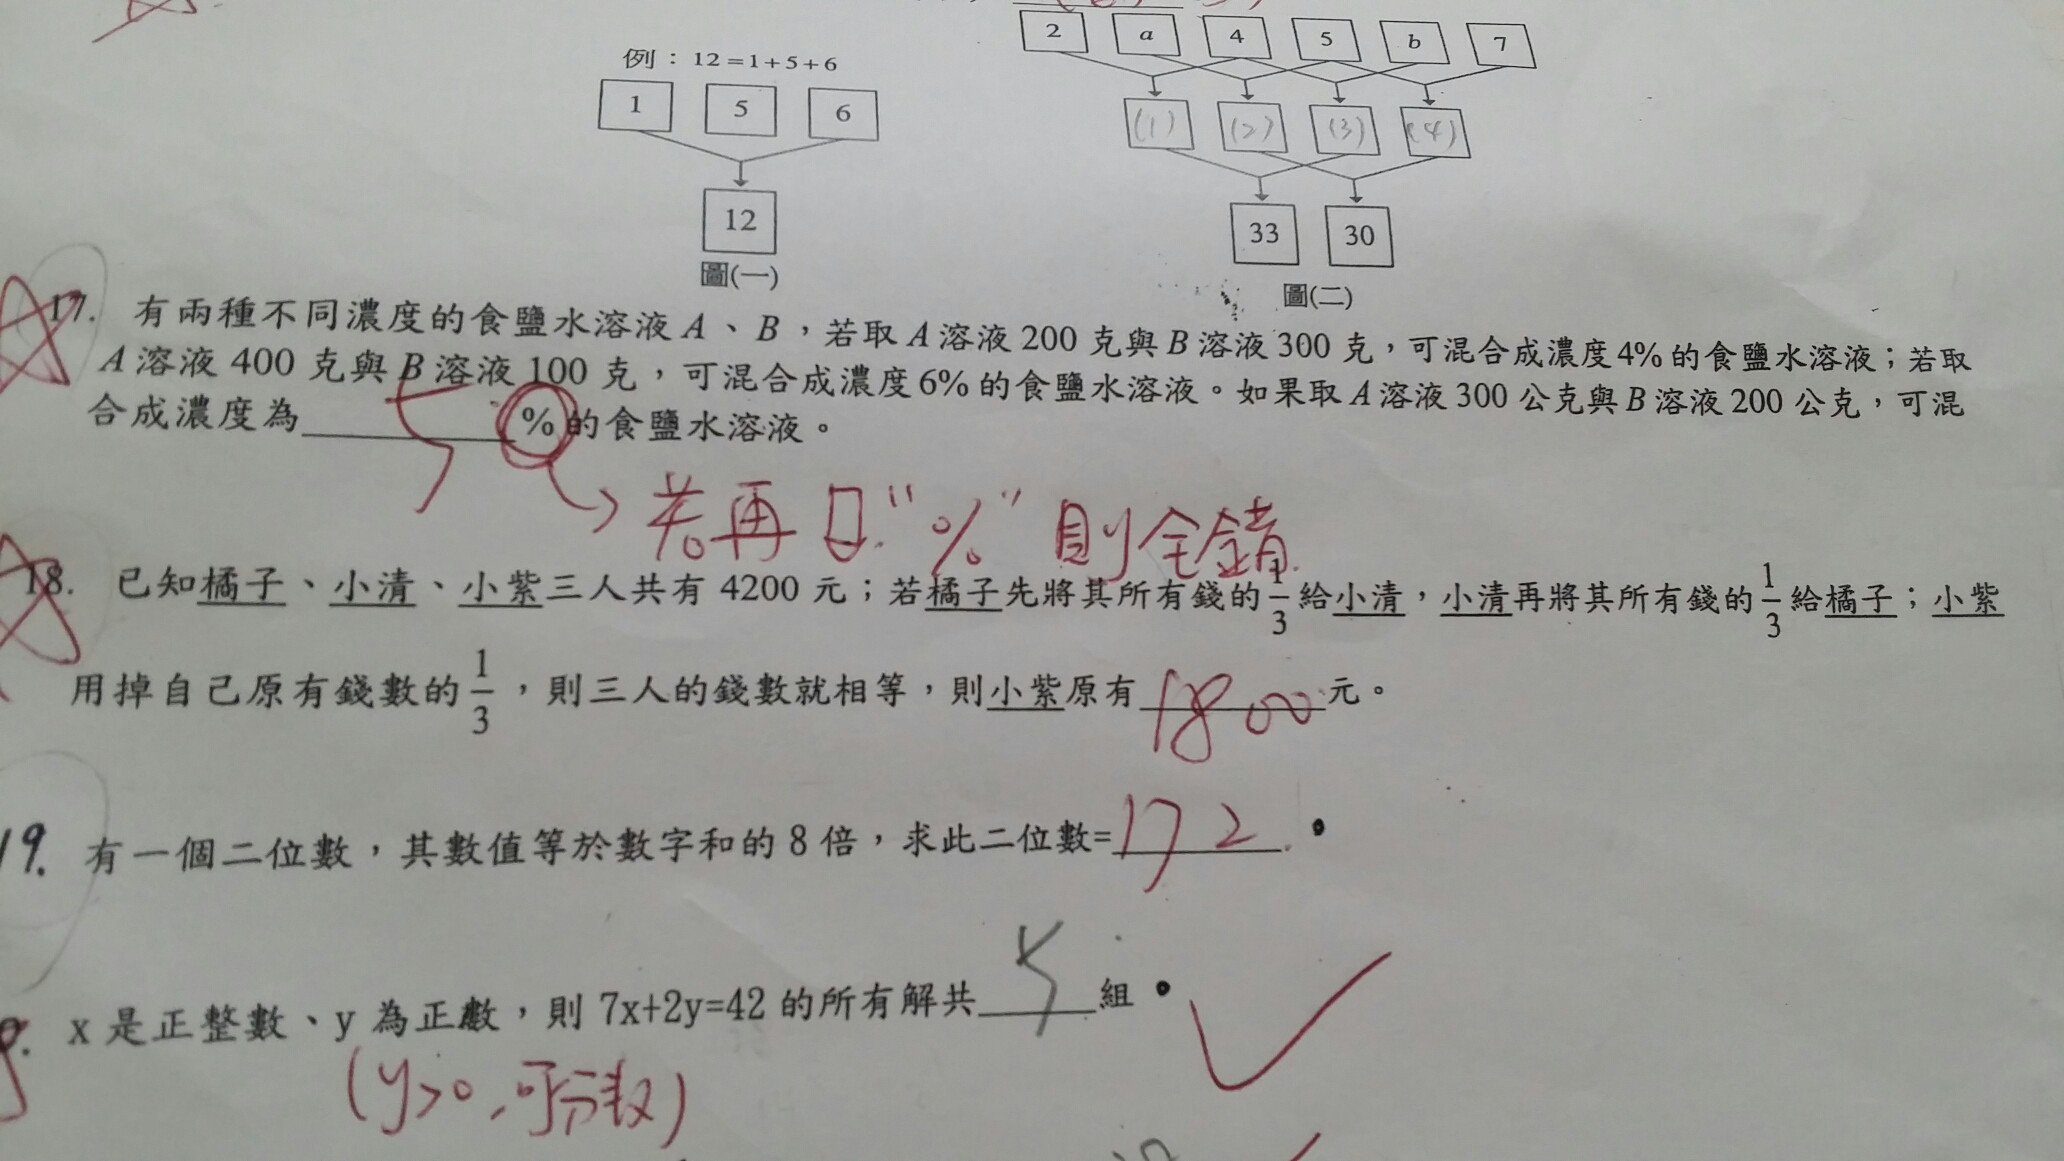 2 a 4 5 b 7
例：12=1+5+6
1 5 6
(1) (2) (3) (4)
12
33 30
圖(一)
圖(二)
17. 有兩種不同濃度的食鹽水溶液 A、B，若取 A 溶液 200 克與 B 溶液 300 克，可混合成濃度 4% 的食鹽水溶液；若取
A 溶液 400 克與 B 溶液 100 克，可混合成濃度 6% 的食鹽水溶液。如果取 A 溶液 300 公克與 B 溶液 200 公克，可混
合成濃度為 % 的食鹽水溶液。
若再 “%” 則全錯.
18. 已知橘子、小清、小紫三人共有 4200 元；若橘子先將其所有錢的 1/3 給小清，小清再將其所有錢的 1/3 給橘子；小紫
用掉自己原有錢數的 1/3，則三人的錢數就相等，則小紫原有 1800 元。
19. 有一個二位數，其數值等於數字和的 8 倍，求此二位數= 72 。
x 是正整數、y 為正數，則 7x+2y=42 的所有解共 5 組。
(y>0, 可分數)